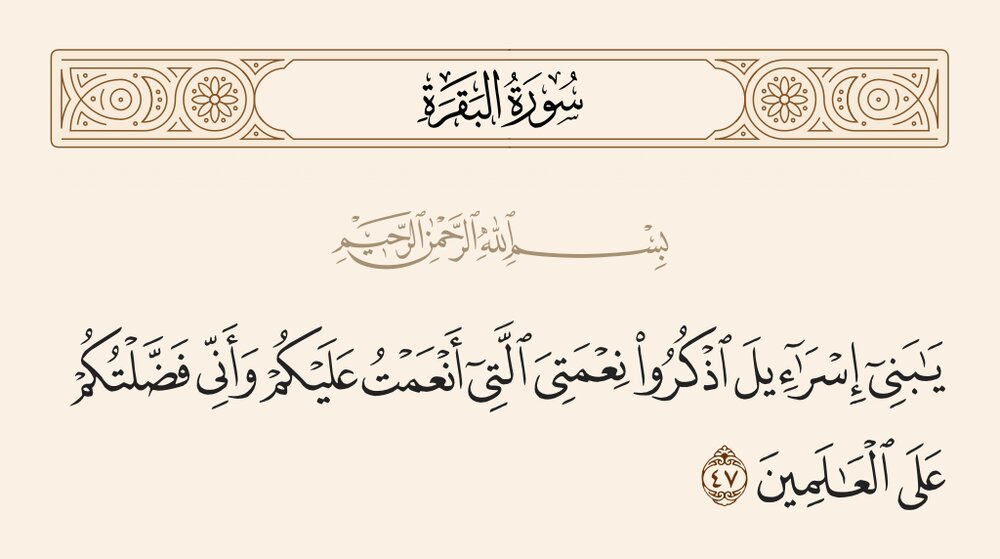 سُورَةُ البَقَرَةِ
بِسْمِ اللَّهِ الرَّحْمَٰنِ الرَّحِيمِ
يَـٰبَنِىٓ إِسْرَٰٓءِيلَ ٱذْكُرُوا۟ نِعْمَتِىَ ٱلَّتِىٓ أَنْعَمْتُ عَلَيْكُمْ وَأَنِّى فَضَّلْتُكُمْ
عَلَى ٱلْعَـٰلَمِينَ ٤٧